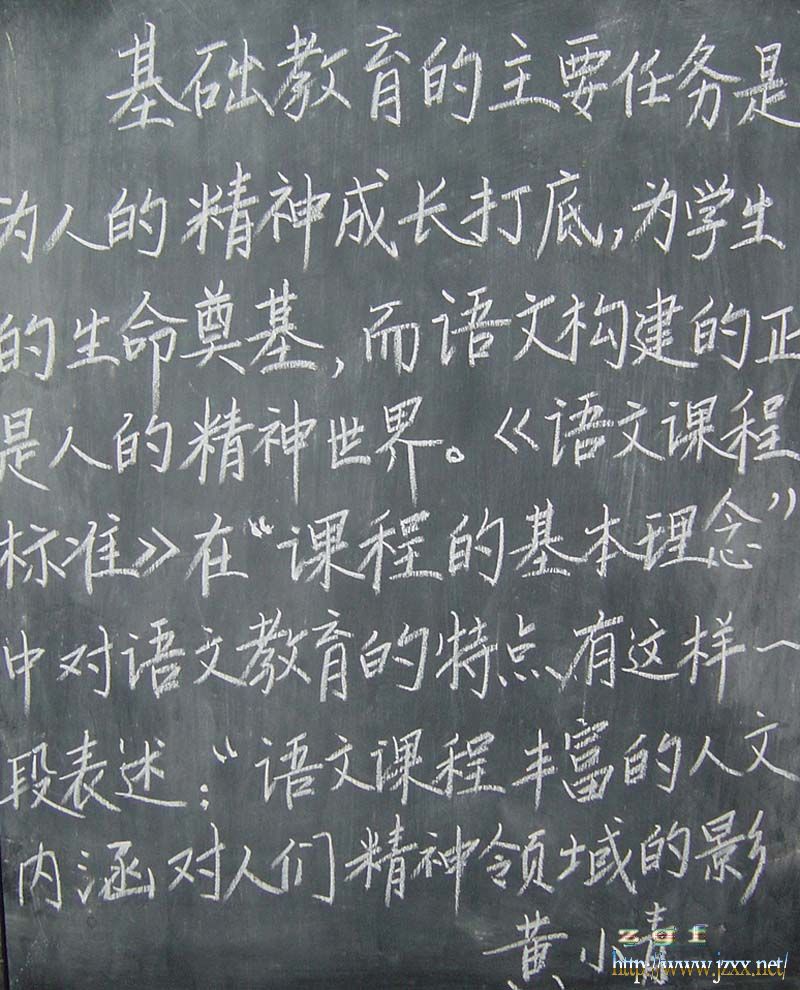 基础教育的主要任务是
为人的精神成长打底,为学生
的生命奠基,而语文构建的正
是人的精神世界。《语文课程
标准》在“课程的基本理念”
中对语文教育的特点有这样一
段表述:“语文课程丰富的人文
内涵对人们精神领域的影
黄小青
zgf
http://www.jzxx.net/